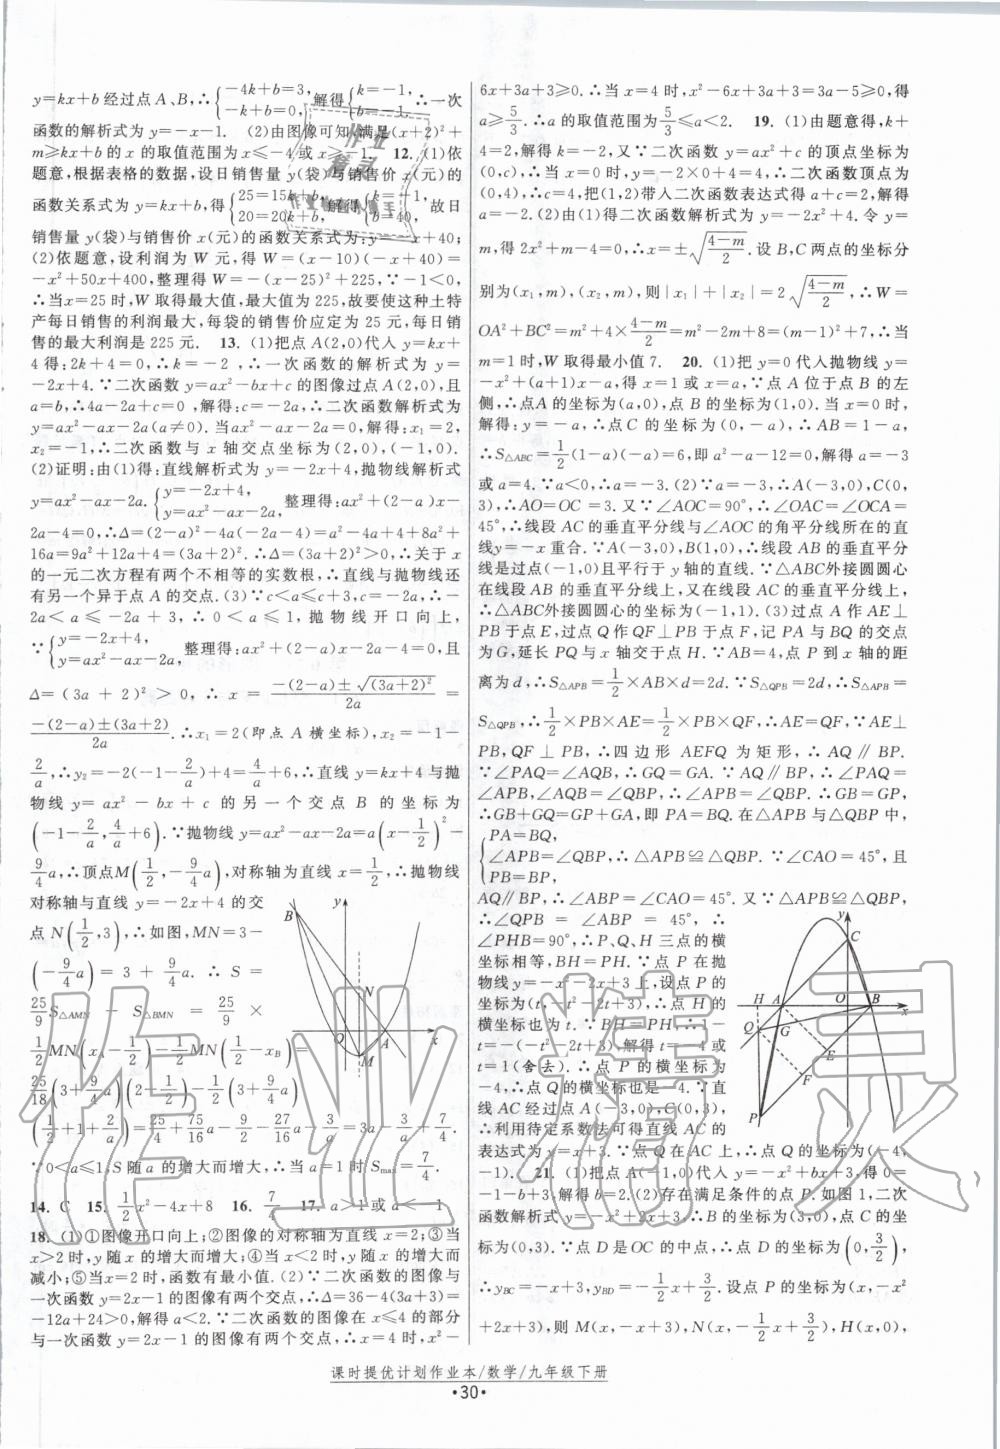 y=kx+b 经过点 A、B,∴{-4k+b=3, -k+b=0, 解得{k=-1, b=-1. ∴一次
函数的解析式为 y=-x-1. (2)由图像可知,满足(x+2)²+
m≥kx+b 的 x 的取值范围为 x≤-4 或 x≥-1. 12. (1)依
题意,根据表格的数据,设日销售量 y(袋)与销售价 x(元)的
函数关系式为 y=kx+b,得{25=15k+b, 20=20k+b, 解得{k=-1, b=40, 故日
销售量 y(袋)与销售价 x(元)的函数关系式为:y=-x+40;
(2)依题意,设利润为 W 元,得 W=(x-10)(-x+40)=
-x²+50x+400,整理得 W=-(x-25)²+225,∵-1<0,
∴当 x=25 时,W 取得最大值,最大值为 225,故要使这种土特
产每日销售的利润最大,每袋的销售价应定为 25 元,每日销
售的最大利润是 225 元. 13. (1)把点 A(2,0)代入 y=kx+
4 得:2k+4=0,∴k=-2,∴一次函数的解析式为 y=
-2x+4.∵二次函数 y=ax²-bx+c 的图像过点 A(2,0),且
a=b,∴4a-2a+c=0,解得:c=-2a,∴二次函数解析式为
y=ax²-ax-2a(a≠0). 当 ax²-ax-2a=0,解得:x₁=2,
x₂=-1,∴二次函数与 x 轴交点坐标为(2,0),(-1,0).
(2)证明:由(1)得:直线解析式为 y=-2x+4,抛物线解析式
y=ax²-ax-2a. {y=-2x+4, y=ax²-ax-2a, 整理得:ax²+(2-a)x-
2a-4=0,∴Δ=(2-a)²-4a(-2a-4)=a²-4a+4+8a²+
16a=9a²+12a+4=(3a+2)².∴Δ=(3a+2)²>0,∴关于 x
的一元二次方程有两个不相等的实数根,∴直线与抛物线还
有另一个异于点 A 的交点. (3)∵c<a≤c+3,c=-2a,∴-
2a<a≤-2a+3,∴0<a≤1,抛物线开口向上,
∵{y=-2x+4, y=ax²-ax-2a, 整理得:ax²+(2-a)x-2a-4=0,且
Δ=(3a+2)²>0,∴x=\frac{-(2-a)±\sqrt{(3a+2)²}}{2a}=
\frac{-(2-a)±(3a+2)}{2a}.∴x₁=2(即点 A 横坐标),x₂=-1-
\frac{2}{a},∴y₂=-2(-1-\frac{2}{a})+4=\frac{4}{a}+6,∴直线 y=kx+4 与抛
物线 y=ax²-bx+c 的另一个交点 B 的坐标为
(-1-\frac{2}{a},\frac{4}{a}+6).∵抛物线 y=ax²-ax-2a=a(x-\frac{1}{2})²-
\frac{9}{4}a,∴顶点M(\frac{1}{2},-\frac{9}{4}a),对称轴为直线 x=\frac{1}{2},∴抛物线
对称轴与直线 y=-2x+4 的交
点 N(\frac{1}{2},3),∴如图,MN=3-
(-\frac{9}{4}a)=3+\frac{9}{4}a.∴S=
\frac{25}{9}S△AMN-S△BMN=\frac{25}{9}×
\frac{1}{2}MN(x_A-\frac{1}{2})-\frac{1}{2}MN(\frac{1}{2}-x_B)=
\frac{25}{18}(3+\frac{9}{4}a)(2-\frac{1}{2})-\frac{1}{2}(3+\frac{9}{4}a)
(\frac{1}{2}+1+\frac{2}{a})=\frac{25}{4}+\frac{75}{16}a-\frac{9}{2}-\frac{27}{16}a-\frac{3}{a}=3a-\frac{3}{a}+\frac{7}{4}.
∵0<a≤1,S 随 a 的增大而增大,∴当 a=1 时 S_max=\frac{7}{4}.
14. C 15. \frac{1}{2}x²-4x+8 16. \frac{7}{4} 17. a>1 或 a<-1
18. (1)①图像开口向上;②图像的对称轴为直线 x=2;③当
x>2 时,y 随 x 的增大而增大;④当 x<2 时,y 随 x 的增大而
减小;⑤当 x=2 时,函数有最小值. (2)∵二次函数的图像与
一次函数 y=2x-1 的图像有两个交点,∴Δ=36-4(3a+3)=
-12a+24>0,解得 a<2.∵二次函数的图像在 x≤4 的部分
与一次函数 y=2x-1 的图像有两个交点,∴x=4 时,x²-
6x+3a+3≥0.∴当 x=4 时,x²-6x+3a+3=3a-5≥0,得
a≥\frac{5}{3}.∴a 的取值范围为\frac{5}{3}≤a<2. 19. (1)由题意得,k+
4=2,解得 k=-2,又∵二次函数 y=ax²+c 的顶点坐标为
(0,c),∴c>0,∴y=-2×0+4=4,∴二次函数顶点为
(0,4),∴c=4,把(1,2)带入二次函数表达式得 a+c=2,解得
a=-2. (2)由(1)得二次函数解析式为 y=-2x²+4. 令 y=
m,得 2x²+m-4=0,∴x=±\sqrt{\frac{4-m}{2}}. 设 B,C 两点的坐标分
别为(x₁,m),(x₂,m),则|x₁|+|x₂|=2\sqrt{\frac{4-m}{2}},∴W=
OA²+BC²=m²+4×\frac{4-m}{2}=m²-2m+8=(m-1)²+7,∴当
m=1 时,W 取得最小值 7. 20. (1)把 y=0 代入抛物线 y=
-x²+(a+1)x-a,得 x=1 或 x=a.∵点 A 位于点 B 的左
侧,∴点 A 的坐标为(a,0),点 B 的坐标为(1,0). 当 x=0 时,
解得:y=-a,∴点 C 的坐标为(0,-a),∴AB=1-a,
∴S△ABC=\frac{1}{2}(1-a)(-a)=6,即 a²-a-12=0,解得 a=-3
或 a=4.∵a<0,∴a=-3. (2)∵a=-3,∴A(-3,0),C(0,
3),∴AO=OC=3. 又∵∠AOC=90°,∴∠OAC=∠OCA=
45°,∴线段 AC 的垂直平分线与∠AOC 的角平分线所在的直
线y=-x 重合.∵A(-3,0),B(1,0),∴线段 AB 的垂直平分
线是过点(-1,0)且平行于 y 轴的直线.∵△ABC外接圆圆心
在线段 AB 的垂直平分线上,又在线段 AC 的垂直平分线上,
∴△ABC外接圆圆心的坐标为(-1,1). (3)过点 A 作 AE⊥
PB 于点 E,过点 Q 作 QF⊥PB 于点 F,记 PA 与 BQ 的交点
为 G,延长 PQ 与 x 轴交于点 H.∵AB=4,点 P 到 x 轴的距
离为 d,∴S△APB=\frac{1}{2}×AB×d=2d.∵S△QPB=2d,∴S△APB=
S△QPB,∴\frac{1}{2}×PB×AE=\frac{1}{2}×PB×QF,∴AE=QF,∵AE⊥
PB,QF⊥PB,∴四边形 AEFQ 为矩形,∴AQ∥BP.
∵∠PAQ=∠AQB,∴GQ=GA.∵AQ∥BP,∴∠PAQ=
∠APB,∠AQB=∠QBP,∴∠APB=∠QBP.∴GB=GP,
∴GB+GQ=GP+GA,即 PA=BQ. 在△APB 与△QBP 中,
{PA=BQ, ∠APB=∠QBP, PB=BP, ∴△APB≌△QBP.∵∠CAO=45°,且
AQ∥BP,∴∠ABP=∠CAO=45°. 又∵△APB≌△QBP,
∴∠QPB=∠ABP=45°,∴
∠PHB=90°,∴P、Q、H 三点的横
坐标相等,BH=PH.∵点 P 在抛
物线 y=-x²-2x+3 上,设点 P 的
坐标为(t,-t²-2t+3),∴点 H 的
横坐标也为 t.∵BH=PH,∴1-
t=-(-t²-2t+3),解得 t=-4 或
t=1(舍去).∴点 P 的横坐标为
-4,∴点 Q 的横坐标也是-4.∵直
线 AC 经过点 A(-3,0),C(0,3),
∴利用待定系数法可得直线 AC 的
表达式为 y=x+3.∵点 Q 在 AC 上,∴点 Q 的坐标为(-4,
-1). 21. (1)把点 A(-1,0)代入 y=-x²+bx+3,得 0=
-1-b+3,解得 b=2. (2)存在满足条件的点 P. 如图 1,二次
函数解析式 y=-x²+2x+3,∴点 B 的坐标为(3,0),点 C 的坐
标为(0,3).∵点 D 是OC 的中点,∴点 D 的坐标为(0,\frac{3}{2}),
∴y_BC=-x+3,y_BD=-\frac{1}{2}x+\frac{3}{2}. 设点 P 的坐标为(x,-x²
+2x+3),则 M(x,-x+3),N(x,-\frac{1}{2}x+\frac{3}{2}),H(x,0),
y
B
N
O
A
x
M
y
C
H
A
O
B
x
Q
G
E
F
P
作业精灵
课时提优计划作业本/数学/九年级下册
·30·